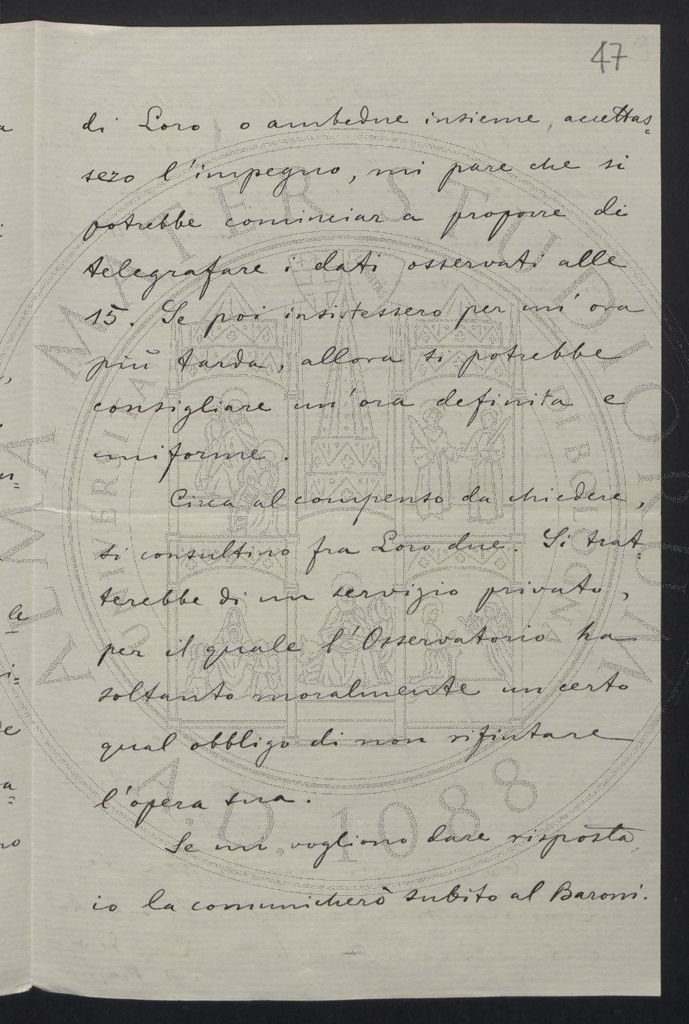 47
di Loro o ambedue insieme, accettas=
sero l'impegno, mi pare che si
potrebbe cominciar a proporre di
telegrafare i dati osservati alle
15. Se poi insistessero per un'ora
più tarda, allora si potrebbe
consigliare un'ora definita e
uniforme.
Circa al compenso da chiedere,
si consultino fra Loro due. Si trat=
terebbe di un servizio privato,
per il quale l'Osservatorio ha
soltanto moralmente un certo
qual obbligo di non rifiutare
l'opera sua.
Se mi vogliono dare risposta,
io la comunicherò subito al Baroni.
ALMA MATER STUDIORUM
A.D. 1088